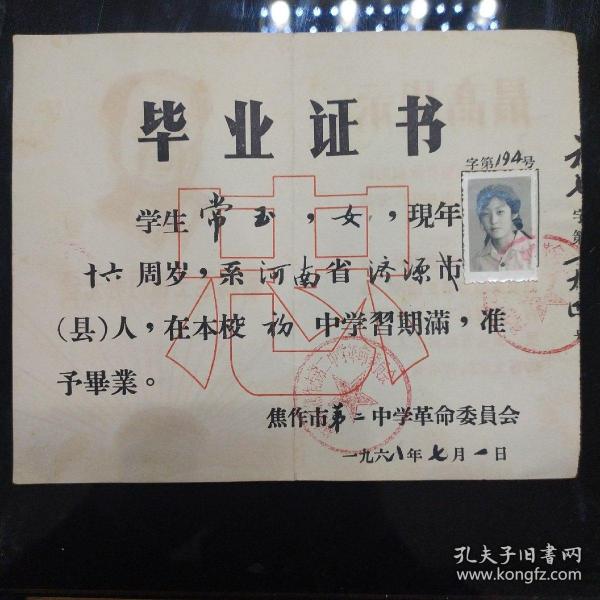 毕业证书
字第194号
学生常玉，女，現年
十六周岁，系河南省济源市
(县)人，在本校初中学習期滿，准
予畢業。
焦作市第二中学革命委員会
一九六八年七月一日
忠
最高指示
字第一九四号
孔夫子旧书网
www.kongfz.com